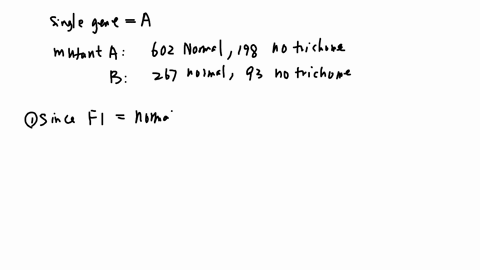 single gene = A
mutant A: 602 Normal, 198 no trichome
B: 267 normal, 93 no trichome
① since F1 = norma